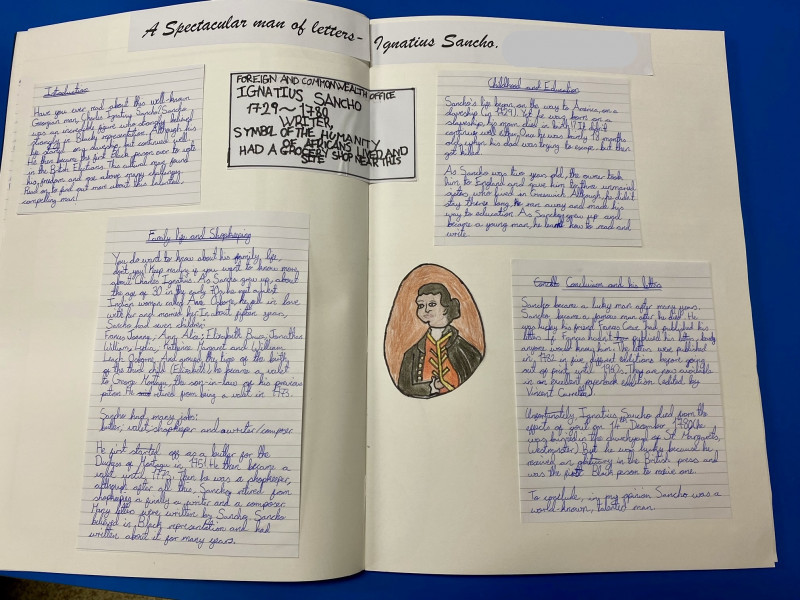 A Spectacular man of letters- Ignatius Sancho.
Introduction
Have you ever read about this well-known
Georgian man, Charles Ignatius Sancho? Sancho
was an incredible figure who strongly believed
in Black representation. Although his
life
on a slaveship, but continued well.
He then became the first Black person ever to vote
in the British Elections. This cultural man, found
his freedom and got above many challenges.
Read on to find out more about this talented,
compelling man!
FOREIGN AND COMMONWEALTH OFFICE
IGNATIUS SANCHO
1729~1780
WRITER,
SYMBOL OF THE HUMANITY
OF AFRICANS LIVED AND
HAD A GROCERY SHOP NEAR THIS
SITE
Family life and Shopkeeping
You do want to know about his family life,
don't you? Keep reading if you want to know more
about Charles Ignatius. As Sancho grew up, about
the age of 30 in the early he met a West
Indian woman called Ann Osborne, he fell in love
with her and married her. In about fifteen years,
Sancho had seven children:
Frances Joanna, Ann Alice, Elizabeth Bruce, Jonathan
William, Lydia, Katherine Margaret and William
Leach Osborne. And around the time of the birth
of the third child (Elizabeth) he became a valet
to George Montagu, the son-in-law of his previous
patron. He retired from being a valet in 1773.
Sancho had many jobs:
butler, valet, shopkeeper and a writer/composer
He first started off as a butler for the
Duchess of Montagu in 1751. He then became a
valet until 1773. Then he was a shopkeeper,
although after all this, Sancho retired from
shopkeeping a finally a writer and a composer.
Many letters were written by Sancho. Sancho
believed in Black representation and had
written about it for many years.
Childhood and Education
Sancho's life began on the way to America, on a
slaveship (in 1729). Yet he was born on a
slaveship, his mom died in birth. It didn't
continue well either. Once he was barely 18 months
only, when his dad was trying to escape, but then
got killed.
As Sancho was two years old, the owner took
him to England and gave him to three unmarried
sisters, who lived in Greenwich. Although, he didn't
stay there long, he ran away and made his
way to education. As Sancho grew up and
became a young man, he learnt how to read and
write.
Conclusion and his letters
Sancho became a lucky man after many years.
Sancho became a famous man after he died. He
was lucky his friend Frances Crew had published his
letters. If Frances hadn't published his letters,
anyone would know him. The letters were published
in 1782 in five different editions before going
out of print until 1960s. They are now available
in an excellent paperback edition (edited by
Vincent Carretta).
Unfortunately, Ignatius Sancho died from the
effects of gout on 14th December, 1780 (he
was buried in the churchyard of St. Margarets,
Westminster). But he was lucky because he
received an obituary in the British press and
was the first Black person to receive one.
To conclude, in my opinion Sancho was a
world-known, talented man.